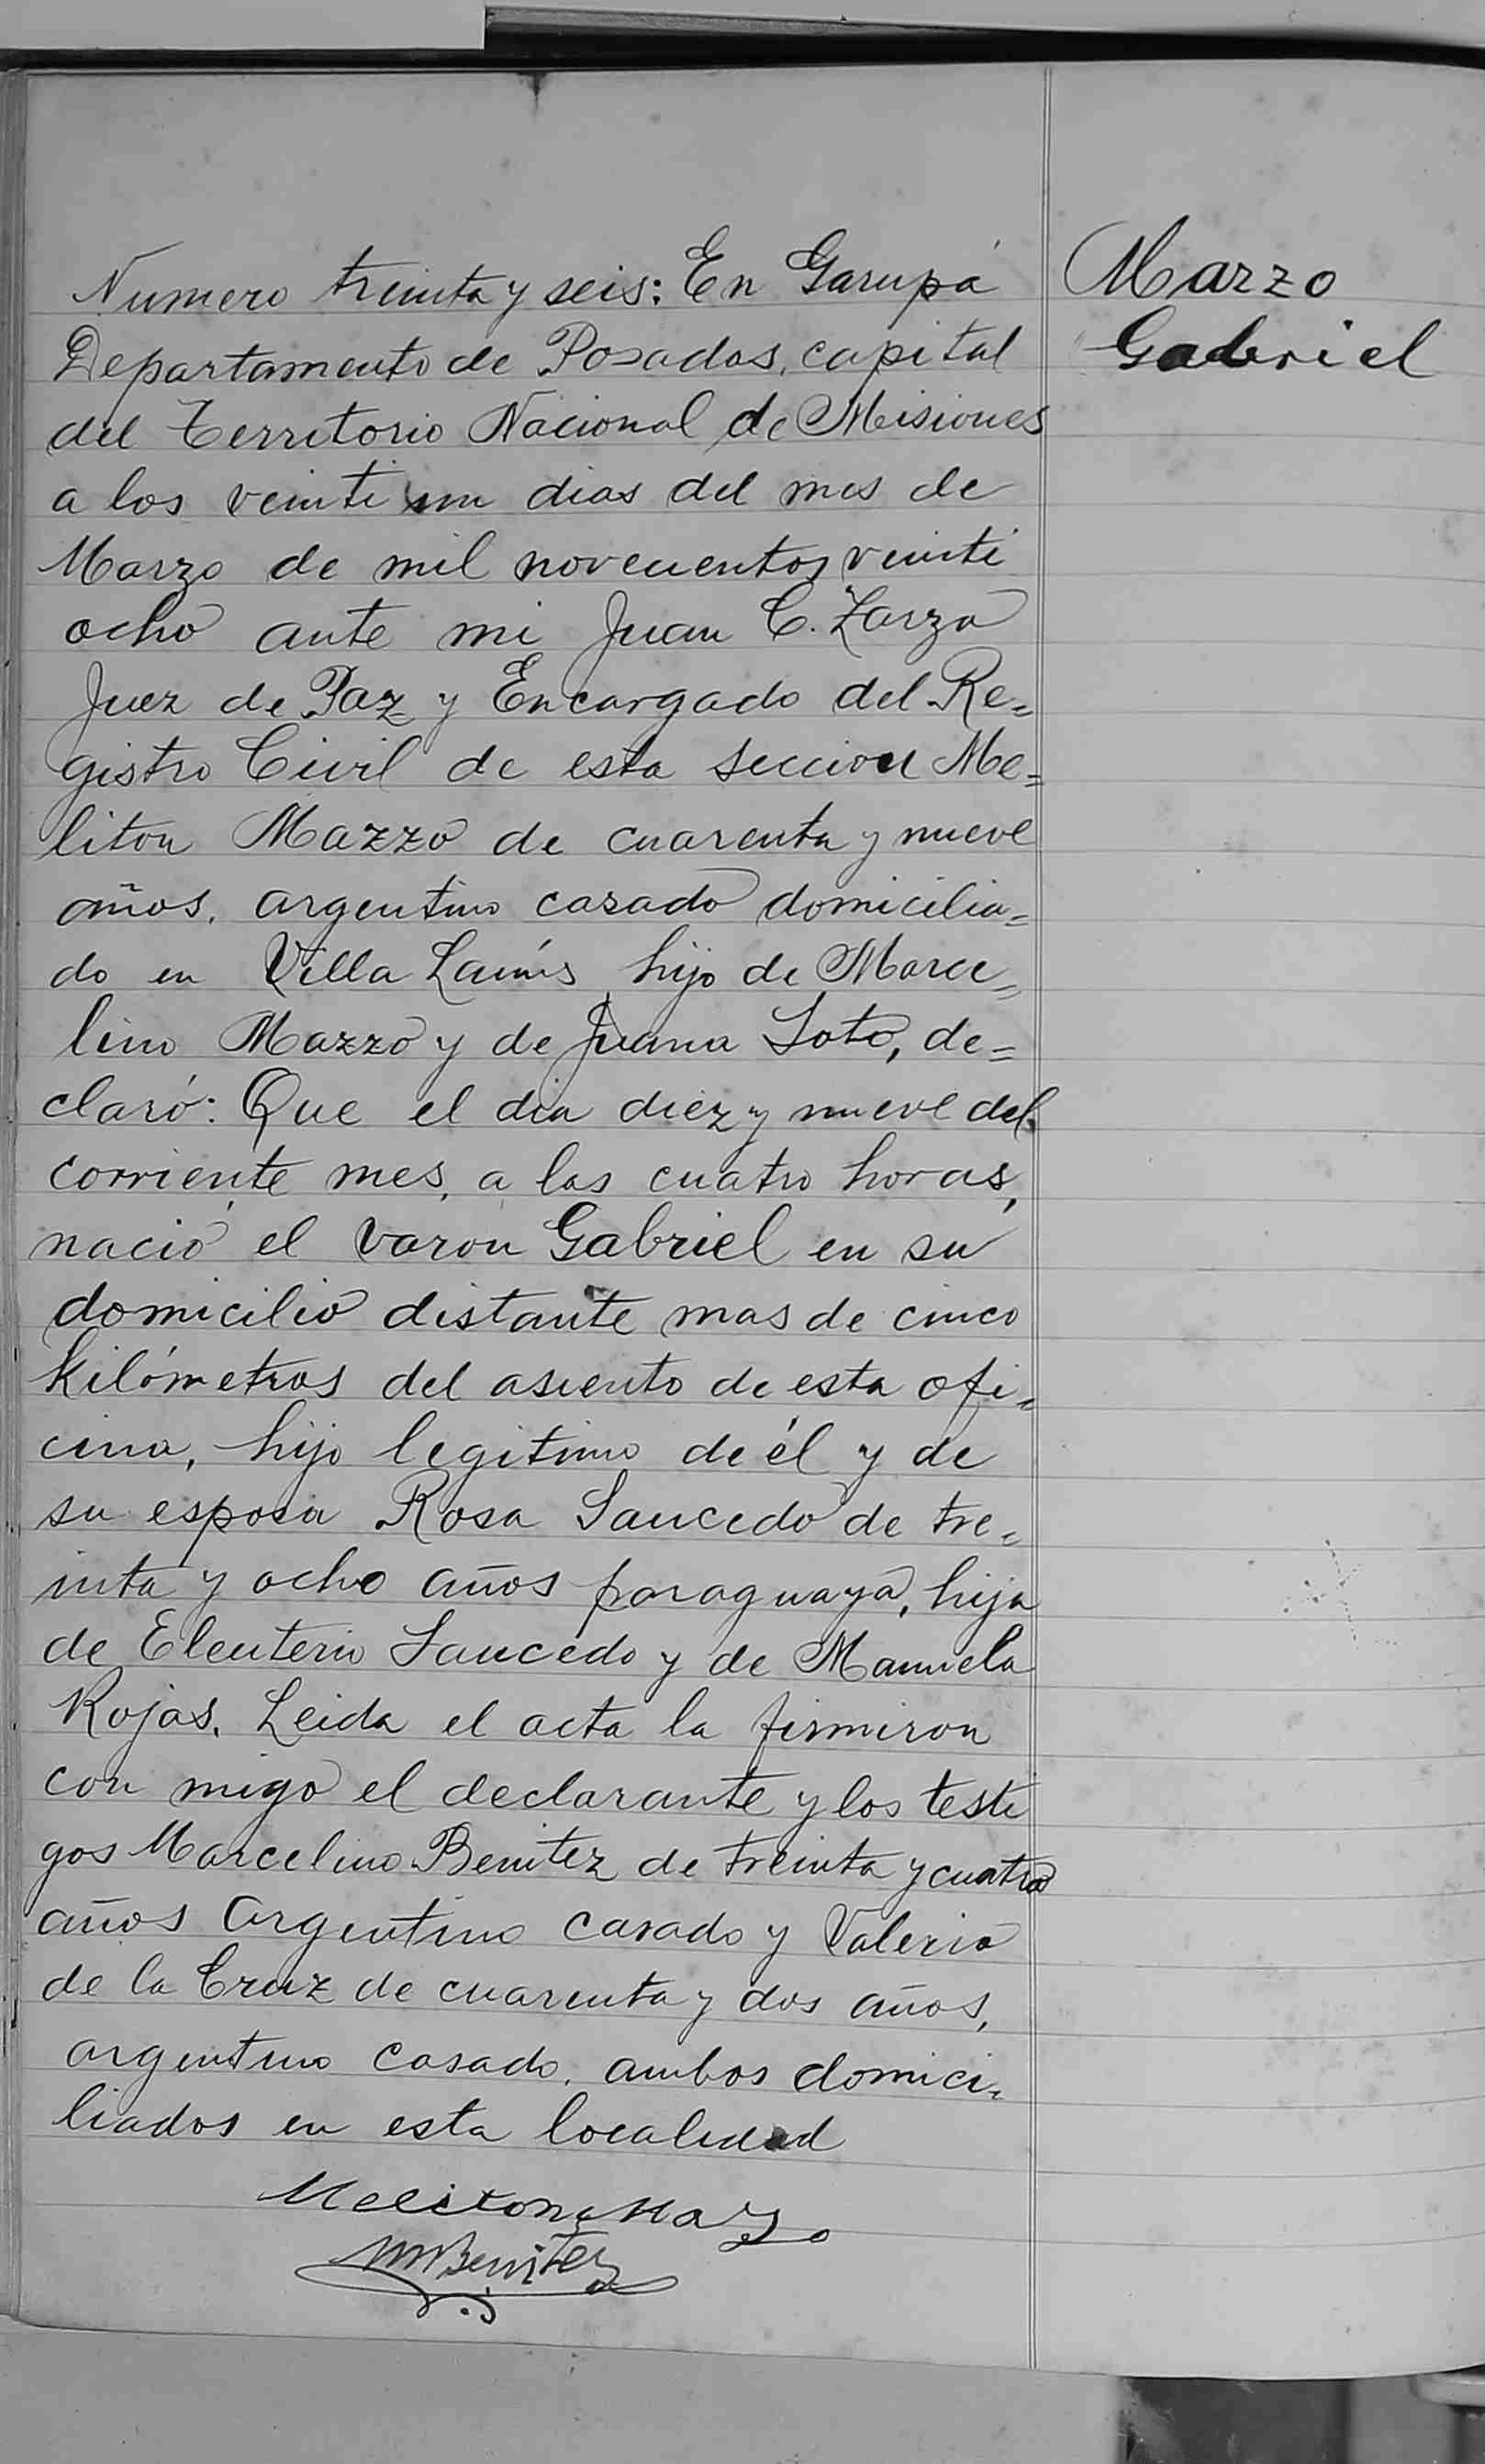 Numero treinta y seis: En Garupá
Departamento de Posadas, capital
del Territorio Nacional de Misiones
a los veinti un dias del mes de
Marzo de mil novecientos veinti
ocho ante mi Juan C. Zarza
Juez de Paz y Encargado del Re=
gistro Civil de esta seccion Me=
liton Mazzo de cuarenta y nueve
años, argentino casado domicilia=
do en Villa Lanús hijo de Marce=
lino Mazzo y de Juana Soto, de=
claró: Que el dia diez y nueve del
corriente mes, a las cuatro horas,
nació el varon Gabriel en su
domicilio distante mas de cinco
kilómetros del asiento de esta ofi=
cina, hijo legitimo de él y de
su esposa Rosa Saucedo de tre=
inta y ocho años paraguaya, hija
de Eleuterio Saucedo y de Manuela
Rojas. Leida el acta la firmiron
con migo el declarante y los testi
gos Marcelino Benitez de treinta y cuatro
años Argentino casado y Valerio
de la Cruz de cuarenta y dos años,
argentino casado, ambos domici=
liados en esta localidad
Meliton Mazo
M Benitez
Marzo
Gabriel